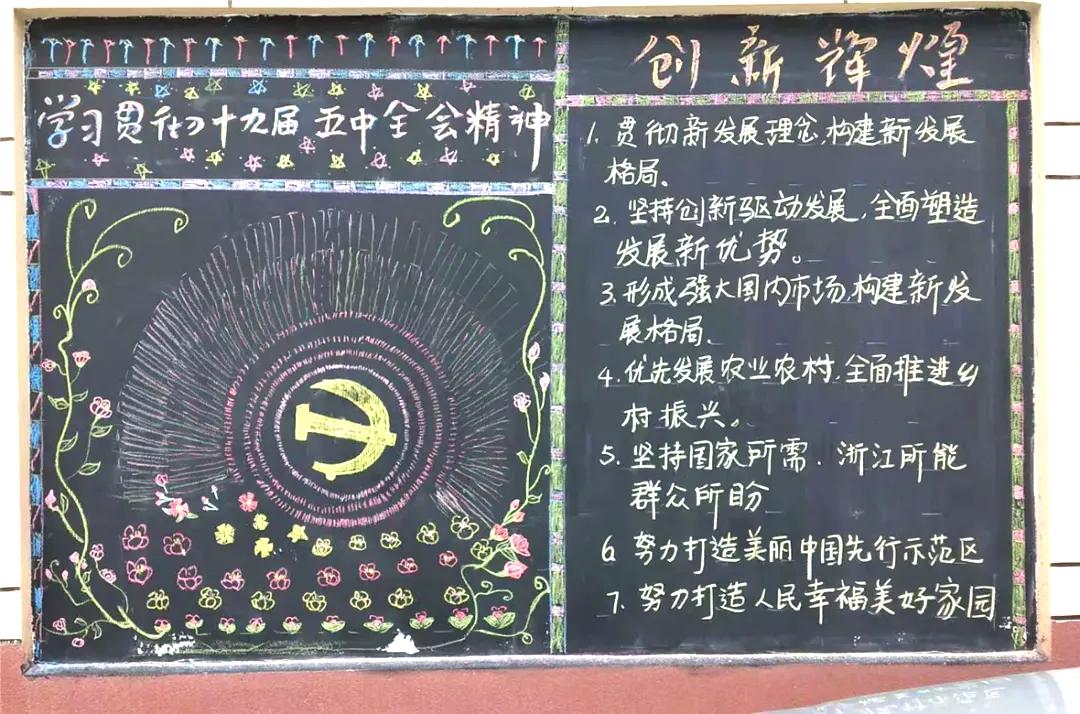 学习贯彻十九届五中全会精神
创新辉煌
1. 贯彻新发展理念,构建新发展
格局.
2. 坚持创新驱动发展,全面塑造
发展新优势。
3. 形成强大国内市场,构建新发
展格局.
4. 优先发展农业农村,全面推进乡
村振兴。
5. 坚持国家所需. 浙江所能
群众所盼
6. 努力打造美丽中国先行示范区
7. 努力打造人民幸福美好家园